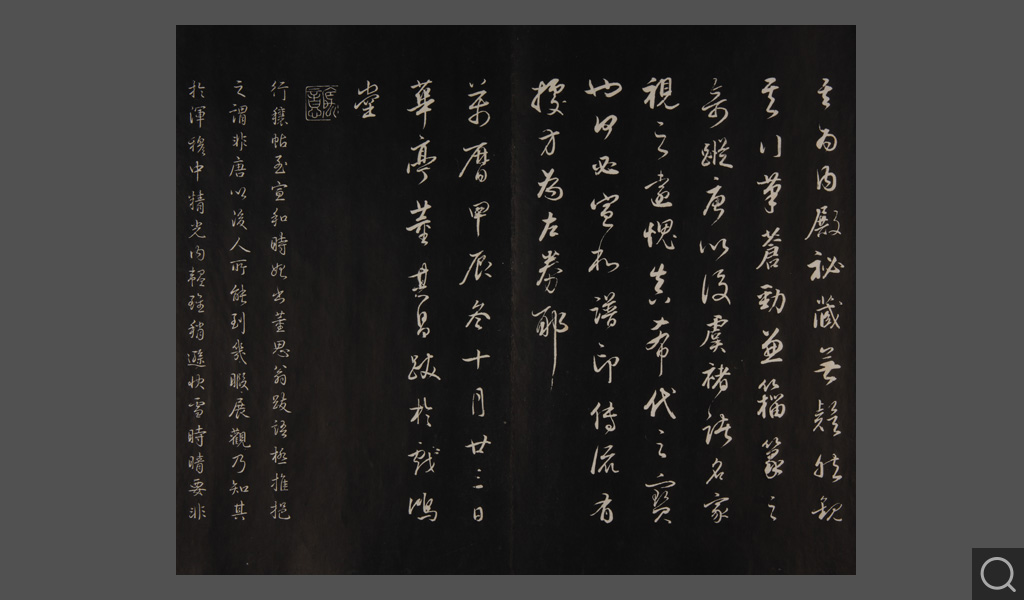 其為內殿祕藏無疑然觀
其行筆蒼勁兼籀篆之
奇蹤唐以後虞褚諸名家
視之遠愧真希代之寶
也何必宣和譜印傳流有
據方為左券耶
萬曆甲辰冬十月廿三日
華亭董其昌跋於戲鴻
堂
行穰帖至宣和時始出董思翁跋語極推挹
之謂非唐以後人所能到幾暇展觀乃知其
於渾穆中精光內韞雖稍遜快雪時晴要非